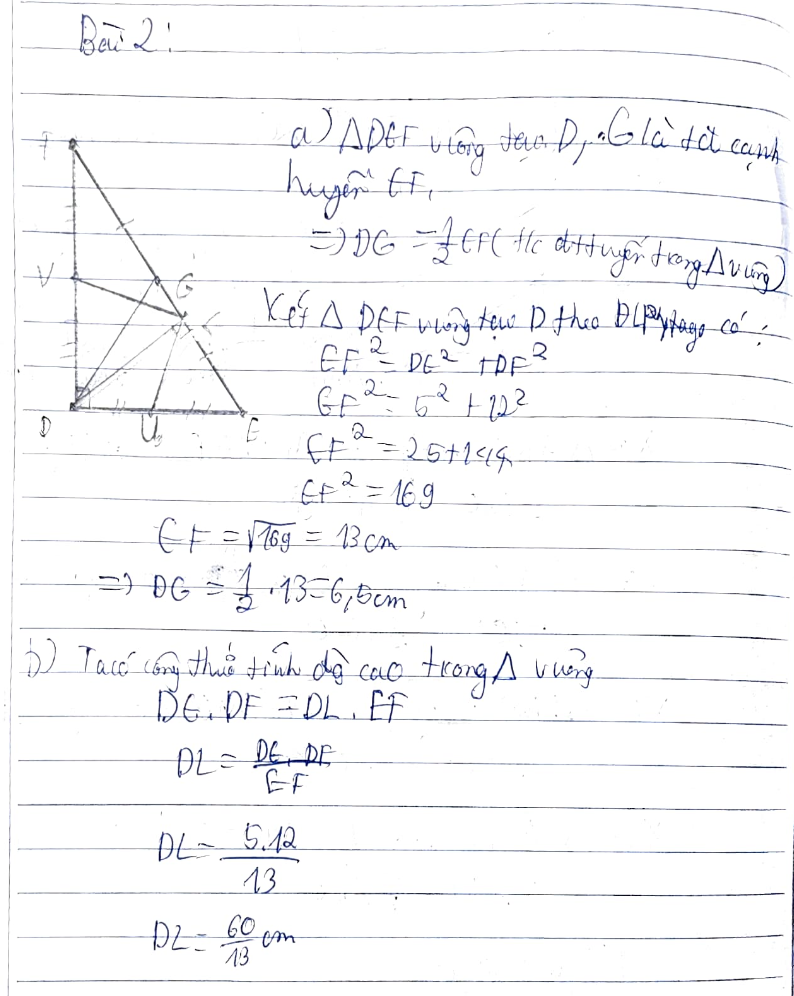 Bài 2:
a) Δ DEF vuông tại D, G là tđ cạnh
huyền EF,
=> DG = 1/2 EF ( t/c đttuyến trong Δ vuông)
Xét Δ DEF vuông tại D theo ĐL Pytago có:
EF² = DE² + DF²
EF² = 5² + 12²
EF² = 25 + 144
EF² = 169
EF = √169 = 13 cm
=> DG = 1/2 . 13 = 6,5 cm
b) Ta có công thức tính độ cao trong Δ vuông
DE . DF = DL . EF
DL = DE . DF / EF
DL = 5.12 / 13
DL = 60/13 cm
F
V
G
L
D
U
E